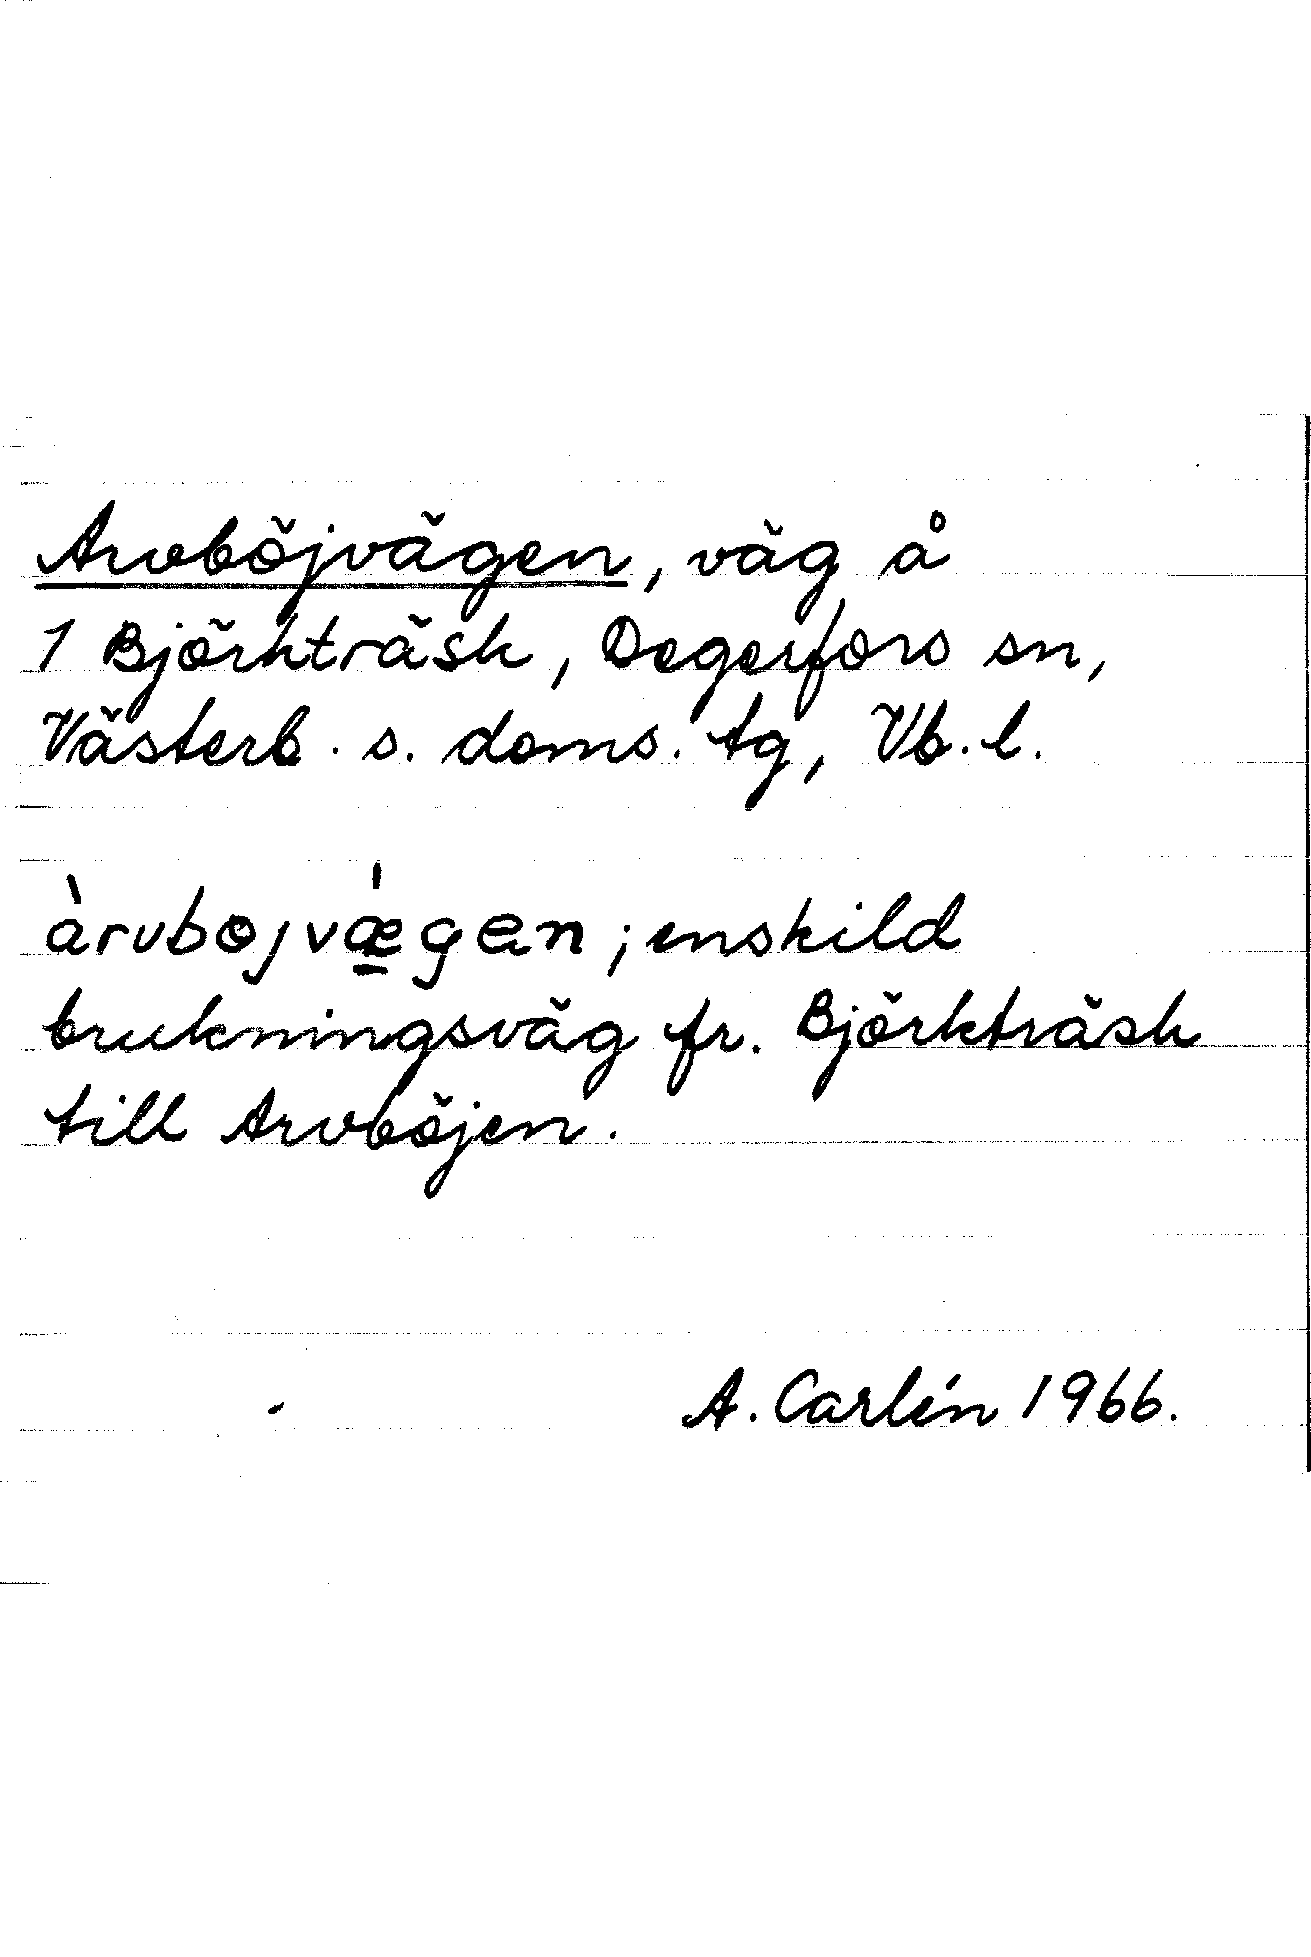 Arvböjvägen, väg å
1 Björkträsk, Degerfors sn,
Västerb. s. doms. tg, Vb. l.
àrvbojvǽ̱gen; enskild
brukningsväg fr. Björkträsk
till Arvböjen.
A. Carlén 1966.